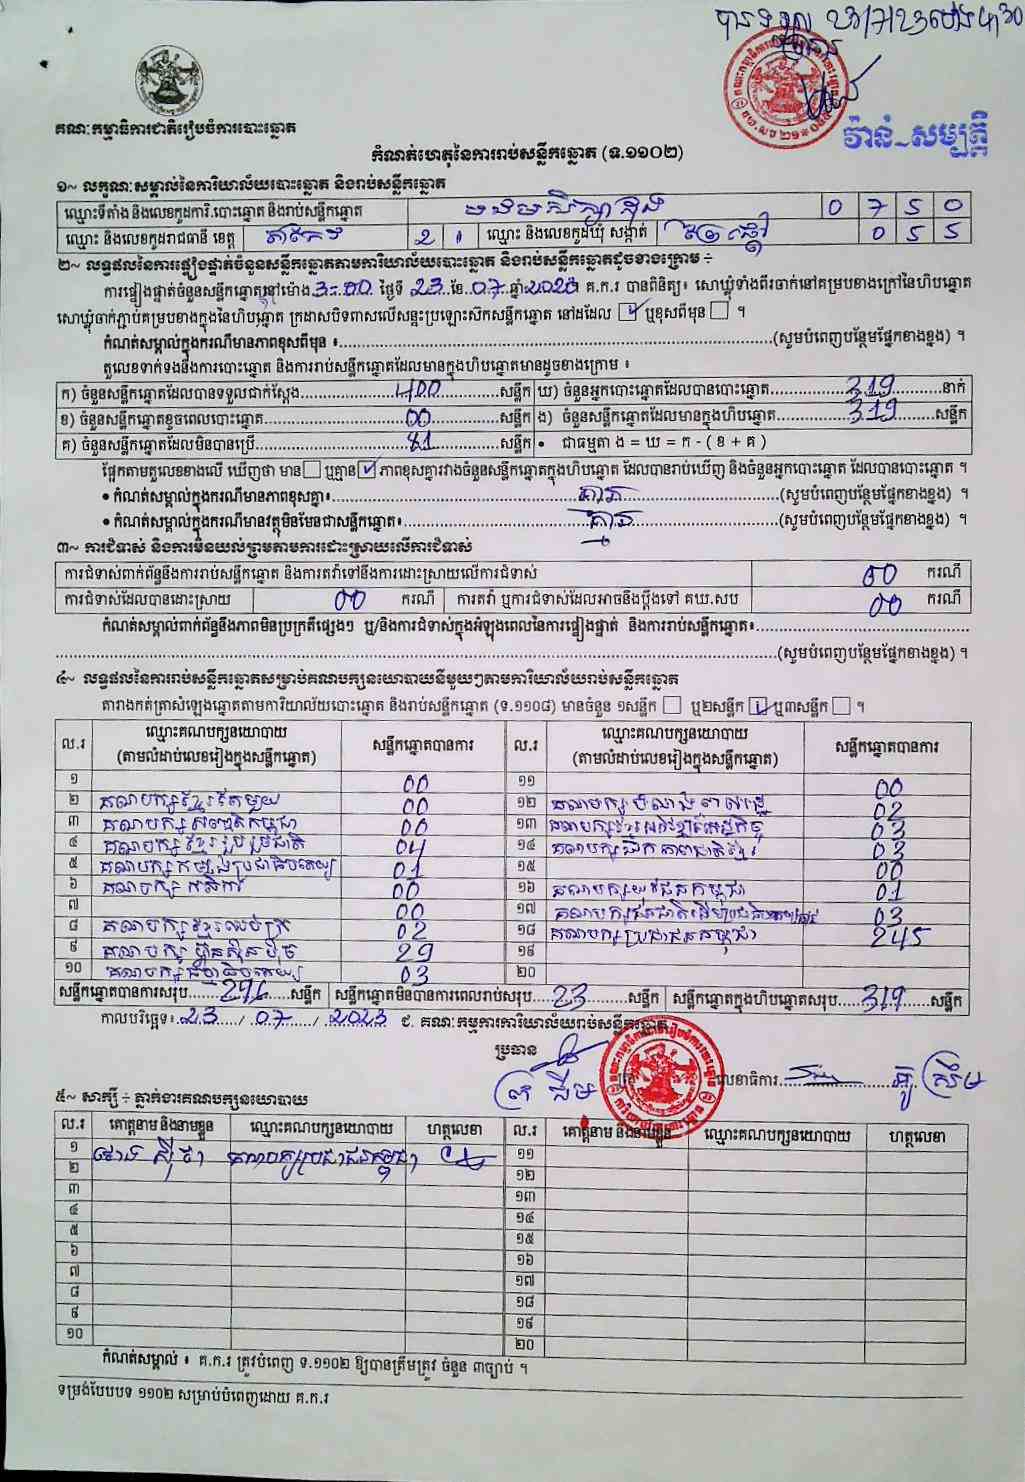 បានទទួល 23/7/23 ម៉ោង 4:30
គណៈកម្មាធិការជាតិរៀបចំការបោះឆ្នោត
វ៉ាន់ សម្បត្តិ
កំណត់ហេតុនៃការរាប់សន្លឹកឆ្នោត (ទ.១១០២)
១~ លក្ខណៈសម្គាល់នៃការិយាល័យបោះឆ្នោត និងរាប់សន្លឹកឆ្នោត
ឈ្មោះទីតាំង និងលេខកូដការិ.បោះឆ្នោត និងរាប់សន្លឹកឆ្នោត 0 7 5 0
ឈ្មោះ និងលេខកូដរាជធានី ខេត្ត តាកែវ 2 1 ឈ្មោះ និងលេខកូដឃុំ សង្កាត់ 0 5 5
២~ លទ្ធផលនៃការផ្ទៀងផ្ទាត់ចំនួនសន្លឹកឆ្នោតតាមការិយាល័យបោះឆ្នោត និងរាប់សន្លឹកឆ្នោតដូចខាងក្រោម ÷
ការផ្ទៀងផ្ទាត់ចំនួនសន្លឹកឆ្នោតនៅម៉ោង 3:00 ថ្ងៃទី 23 ខែ 07 ឆ្នាំ 2023 គ.ក.រ បានពិនិត្យ៖ សោឃ្លុំទាំងពីរចាក់នៅគម្របខាងក្រៅនៃហិបឆ្នោត
សោឃ្លុំចាក់ភ្ជាប់គម្របខាងក្នុងនៃហិបឆ្នោត ក្រដាសបិទពាសលើសន្ទះប្រឡោះសឹកសន្លឹកឆ្នោត នៅដដែល ☑ ឬខុសពីមុន ☐ ។
កំណត់សម្គាល់ក្នុងករណីមានភាពខុសពីមុន ៖..........(សូមបំពេញបន្ថែមផ្នែកខាងខ្នង) ។
តួលេខទាក់ទងនឹងការបោះឆ្នោត និងការរាប់សន្លឹកឆ្នោតដែលមានក្នុងហិបឆ្នោតមានដូចខាងក្រោម ៖
ក) ចំនួនសន្លឹកឆ្នោតដែលបានទទួលជាក់ស្តែង 400 សន្លឹក ឃ) ចំនួនអ្នកបោះឆ្នោតដែលបានបោះឆ្នោត 319 នាក់
ខ) ចំនួនសន្លឹកឆ្នោតខូចពេលបោះឆ្នោត 00 សន្លឹក ង) ចំនួនសន្លឹកឆ្នោតដែលមានក្នុងហិបឆ្នោត 319 សន្លឹក
គ) ចំនួនសន្លឹកឆ្នោតដែលមិនបានប្រើ 81 សន្លឹក • ជាធម្មតា ង = ឃ = ក - ( ខ + គ )
ផ្អែកតាមតួលេខខាងលើ ឃើញថា មាន ☐ ឬគ្មាន ☑ ភាពខុសគ្នារវាងចំនួនសន្លឹកឆ្នោតក្នុងហិបឆ្នោត ដែលបានរាប់ឃើញ និងចំនួនអ្នកបោះឆ្នោត ដែលបានបោះឆ្នោត ។
• កំណត់សម្គាល់ក្នុងករណីមានភាពខុសគ្នា៖ គ្មាន (សូមបំពេញបន្ថែមផ្នែកខាងខ្នង) ។
• កំណត់សម្គាល់ក្នុងករណីមានវត្ថុមិនមែនជាសន្លឹកឆ្នោត៖ គ្មាន (សូមបំពេញបន្ថែមផ្នែកខាងខ្នង) ។
៣~ ការជំទាស់ និងការមិនយល់ព្រមតាមការដោះស្រាយលើការជំទាស់
ការជំទាស់ពាក់ព័ន្ធនឹងការរាប់សន្លឹកឆ្នោត និងការតវ៉ាទៅនឹងការដោះស្រាយលើការជំទាស់ 00 ករណី
ការជំទាស់ដែលបានដោះស្រាយ 00 ករណី ការតវ៉ា ឬការជំទាស់ដែលអាចនឹងប្តឹងទៅ គឃ.សប 00 ករណី
កំណត់សម្គាល់ពាក់ព័ន្ធនឹងភាពមិនប្រក្រតីផ្សេងៗ ឬ/និងការជំទាស់ក្នុងអំឡុងពេលនៃការផ្ទៀងផ្ទាត់ និងការរាប់សន្លឹកឆ្នោត៖
(សូមបំពេញបន្ថែមផ្នែកខាងខ្នង) ។
៤~ លទ្ធផលនៃការរាប់សន្លឹកឆ្នោតសម្រាប់គណបក្សនយោបាយនីមួយៗតាមការិយាល័យរាប់សន្លឹកឆ្នោត
តារាងកត់ត្រាសំឡេងឆ្នោតតាមការិយាល័យបោះឆ្នោត និងរាប់សន្លឹកឆ្នោត (ទ.១១០៨) មានចំនួន ១សន្លឹក ☐ ឬ២សន្លឹក ☑ ឬ៣សន្លឹក ☐ ។
ល.រ ឈ្មោះគណបក្សនយោបាយ (តាមលំដាប់លេខរៀងក្នុងសន្លឹកឆ្នោត) សន្លឹកឆ្នោតបានការ ល.រ ឈ្មោះគណបក្សនយោបាយ (តាមលំដាប់លេខរៀងក្នុងសន្លឹកឆ្នោត) សន្លឹកឆ្នោតបានការ
១ 00 ១១ 00
២ គណបក្សខ្មែរតែមួយ 00 ១២ 02
៣ គណបក្ស 00 ១៣ គណបក្សខ្មែរអភិវឌ្ឍន៍សេដ្ឋកិច្ច 03
៤ គណបក្សខ្មែររួបរួមជាតិ 04 ១៤ គណបក្សឯកភាពជាតិខ្មែរ 03
៥ គណបក្សកម្លាំងប្រជាធិបតេយ្យ 01 ១៥ 00
៦ គណបក្សកសិករ 00 ១៦ គណបក្សយុវជនកម្ពុជា 01
៧ 00 ១៧ 03
៨ គណបក្សខ្មែរឈប់ក្រ 02 ១៨ គណបក្សប្រជាជនកម្ពុជា 245
៩ គណបក្ស ហ្វ៊ុនស៊ិនប៉ិច 29 ១៩
១០ គណបក្សធម្មាធិបតេយ្យ 03 ២០
សន្លឹកឆ្នោតបានការសរុប 296 សន្លឹក សន្លឹកឆ្នោតមិនបានការពេលរាប់សរុប 23 សន្លឹក សន្លឹកឆ្នោតក្នុងហិបឆ្នោតសរុប 319 សន្លឹក
កាលបរិច្ឆេទ៖ 23 / 07 / 2023 ជ. គណៈកម្មការការិយាល័យរាប់សន្លឹកឆ្នោត
ប្រធាន
លេខាធិការ
៥~ សាក្សី ÷ ភ្នាក់ងារគណបក្សនយោបាយ
ល.រ គោត្តនាម និងនាមខ្លួន ឈ្មោះគណបក្សនយោបាយ ហត្ថលេខា ល.រ គោត្តនាម និងនាមខ្លួន ឈ្មោះគណបក្សនយោបាយ ហត្ថលេខា
១ គណបក្សប្រជាជនកម្ពុជា ១១
២ ១២
៣ ១៣
៤ ១៤
៥ ១៥
៦ ១៦
៧ ១៧
៨ ១៨
៩ ១៩
១០ ២០
កំណត់សម្គាល់ ៖ គ.ក.រ ត្រូវបំពេញ ទ.១១០២ ឱ្យបានត្រឹមត្រូវ ចំនួន ៣ច្បាប់ ។
ទម្រង់បែបបទ ១១០២ សម្រាប់បំពេញដោយ គ.ក.រ